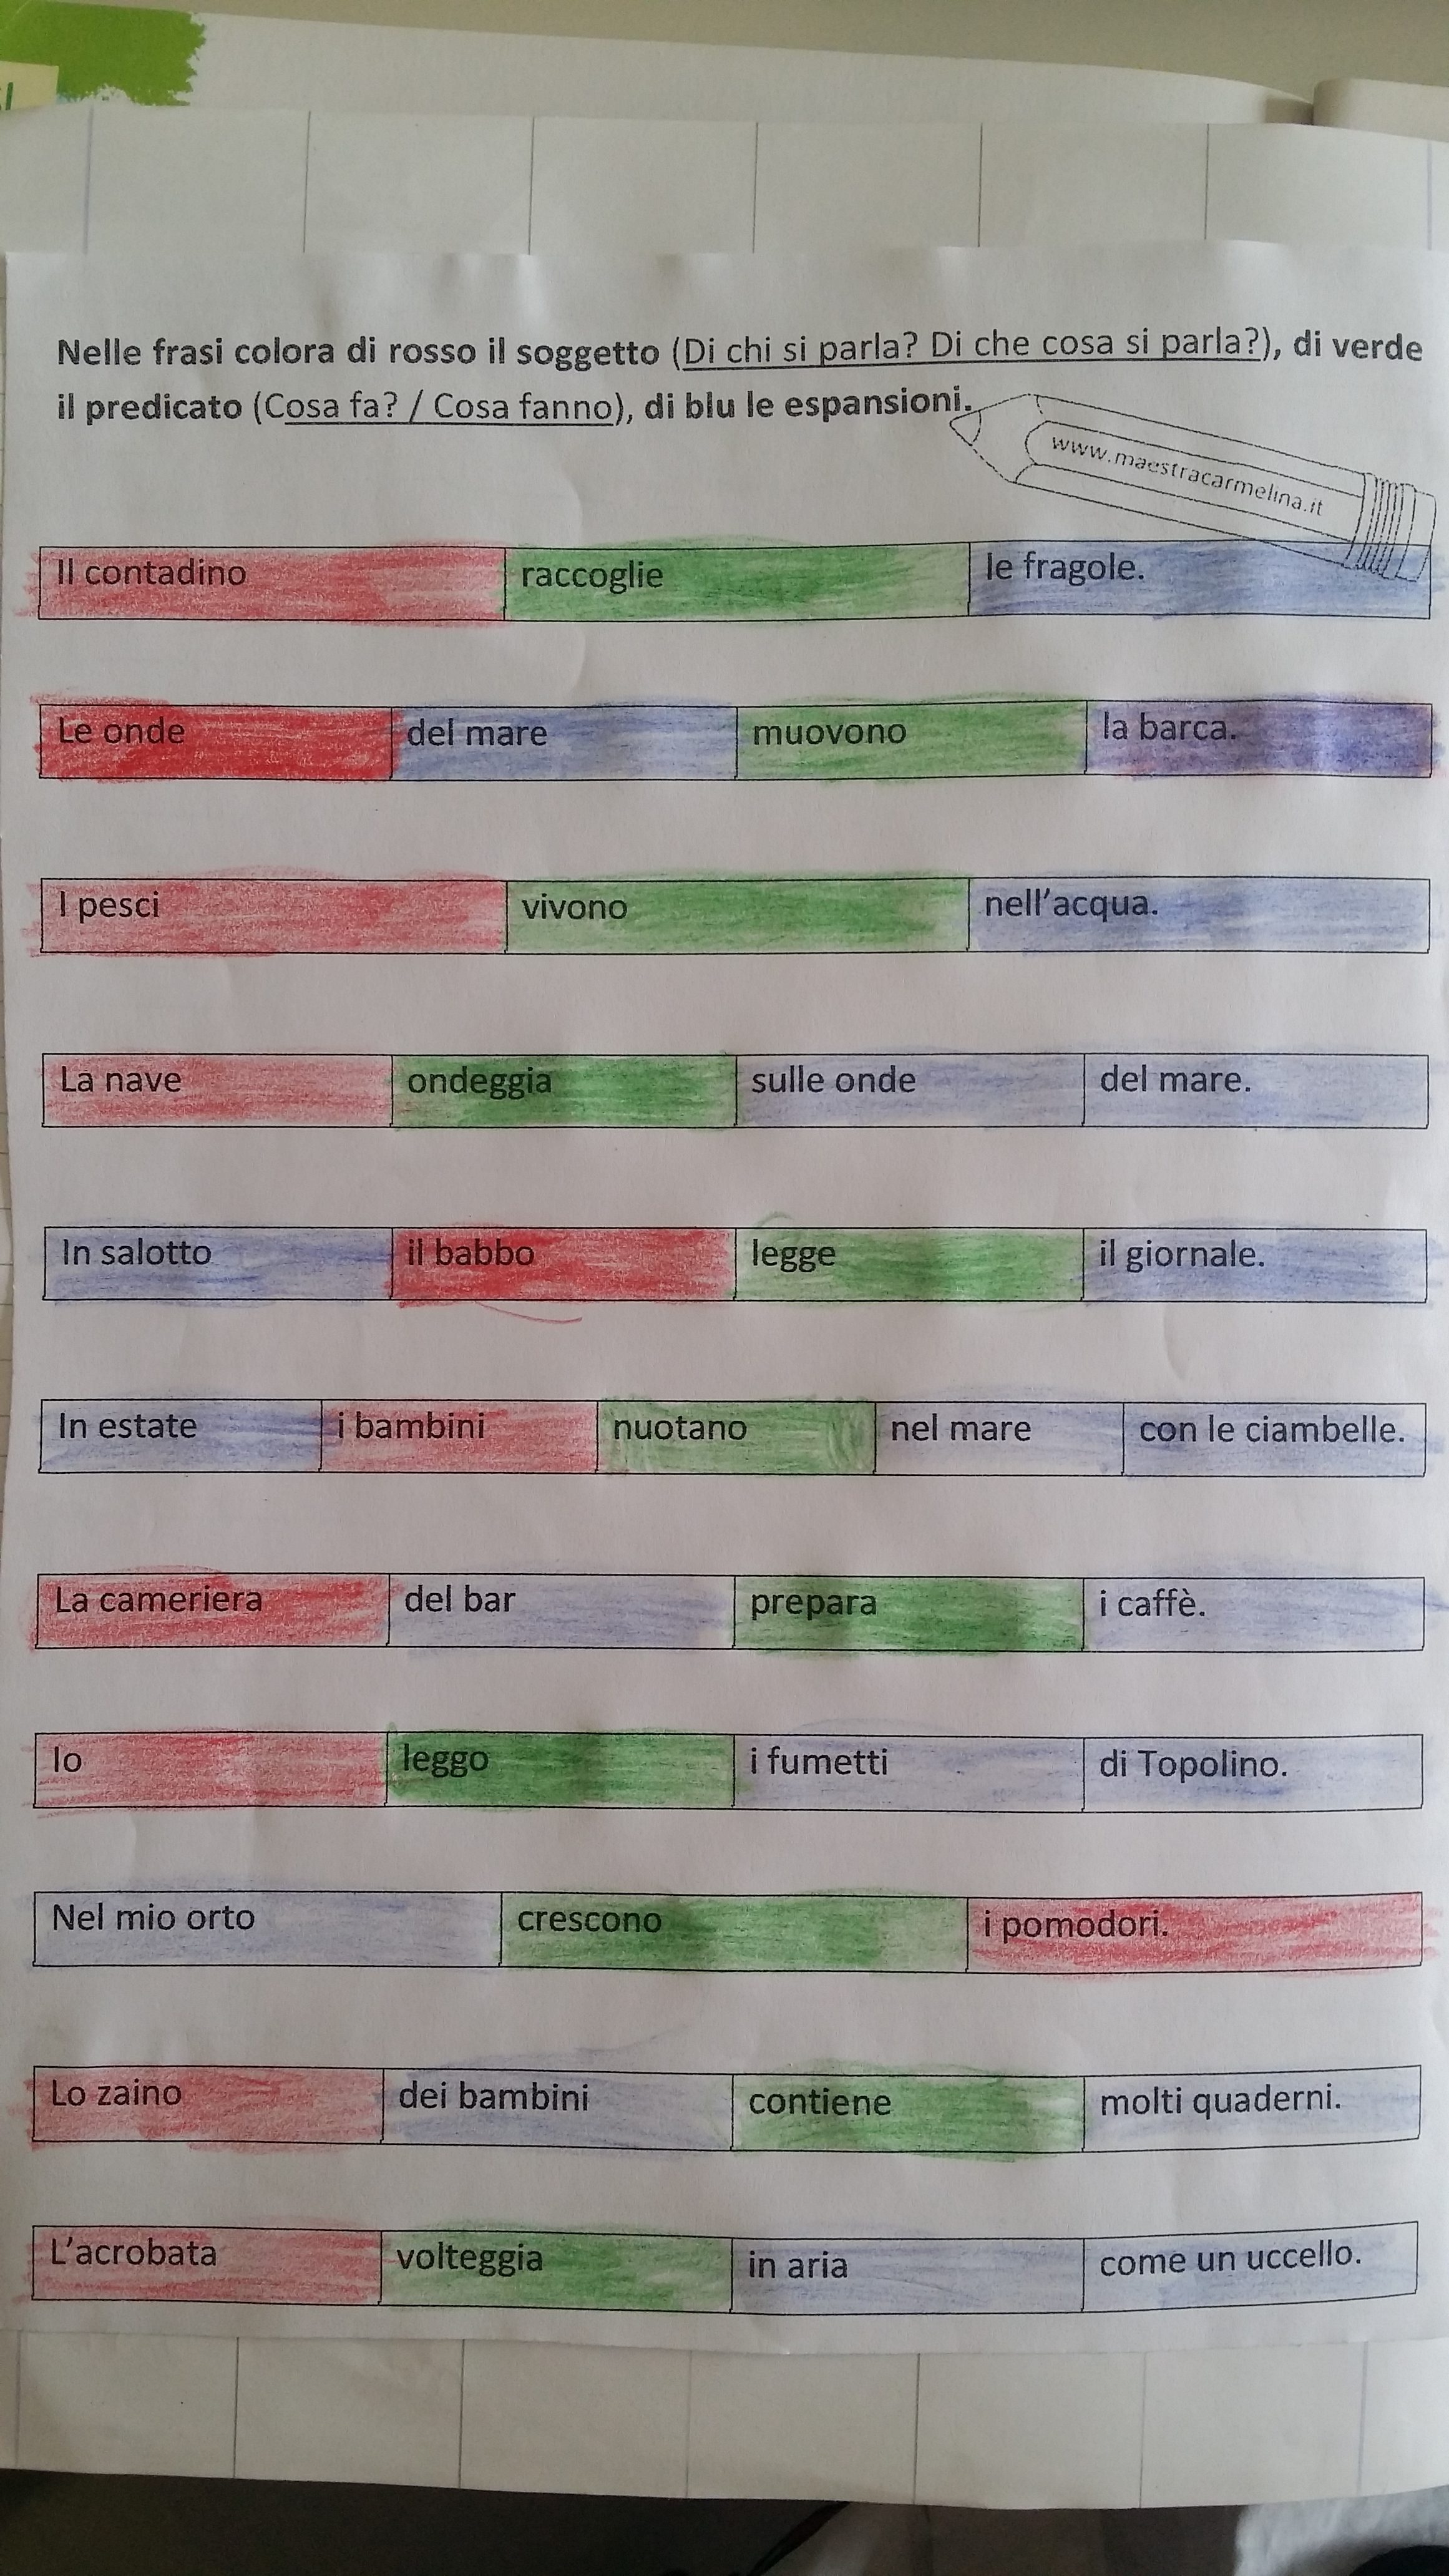 Nelle frasi colora di rosso il soggetto (Di chi si parla? Di che cosa si parla?), di verde
il predicato (Cosa fa? / Cosa fanno), di blu le espansioni.
www.maestracarmelina.it
Il contadino raccoglie le fragole.
Le onde del mare muovono la barca.
I pesci vivono nell'acqua.
La nave ondeggia sulle onde del mare.
In salotto il babbo legge il giornale.
In estate i bambini nuotano nel mare con le ciambelle.
La cameriera del bar prepara i caffè.
Io leggo i fumetti di Topolino.
Nel mio orto crescono i pomodori.
Lo zaino dei bambini contiene molti quaderni.
L'acrobata volteggia in aria come un uccello.